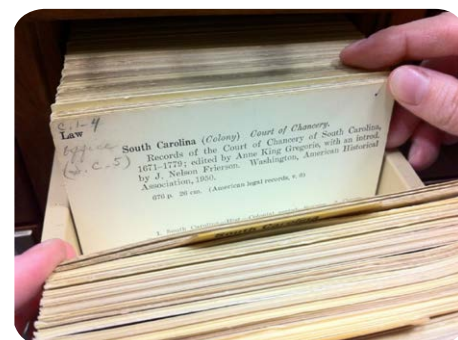 C.1.4
Law
office
(S.C.-5)
South Carolina (Colony) Court of Chancery.
Records of the Court of Chancery of South Carolina,
1671-1779; edited by Anne King Gregorie, with an introd.
by J. Nelson Frierson. Washington, American Historical
Association, 1950.
676 p. 26 cm. (American legal records, v. 6)
1. South Carolina